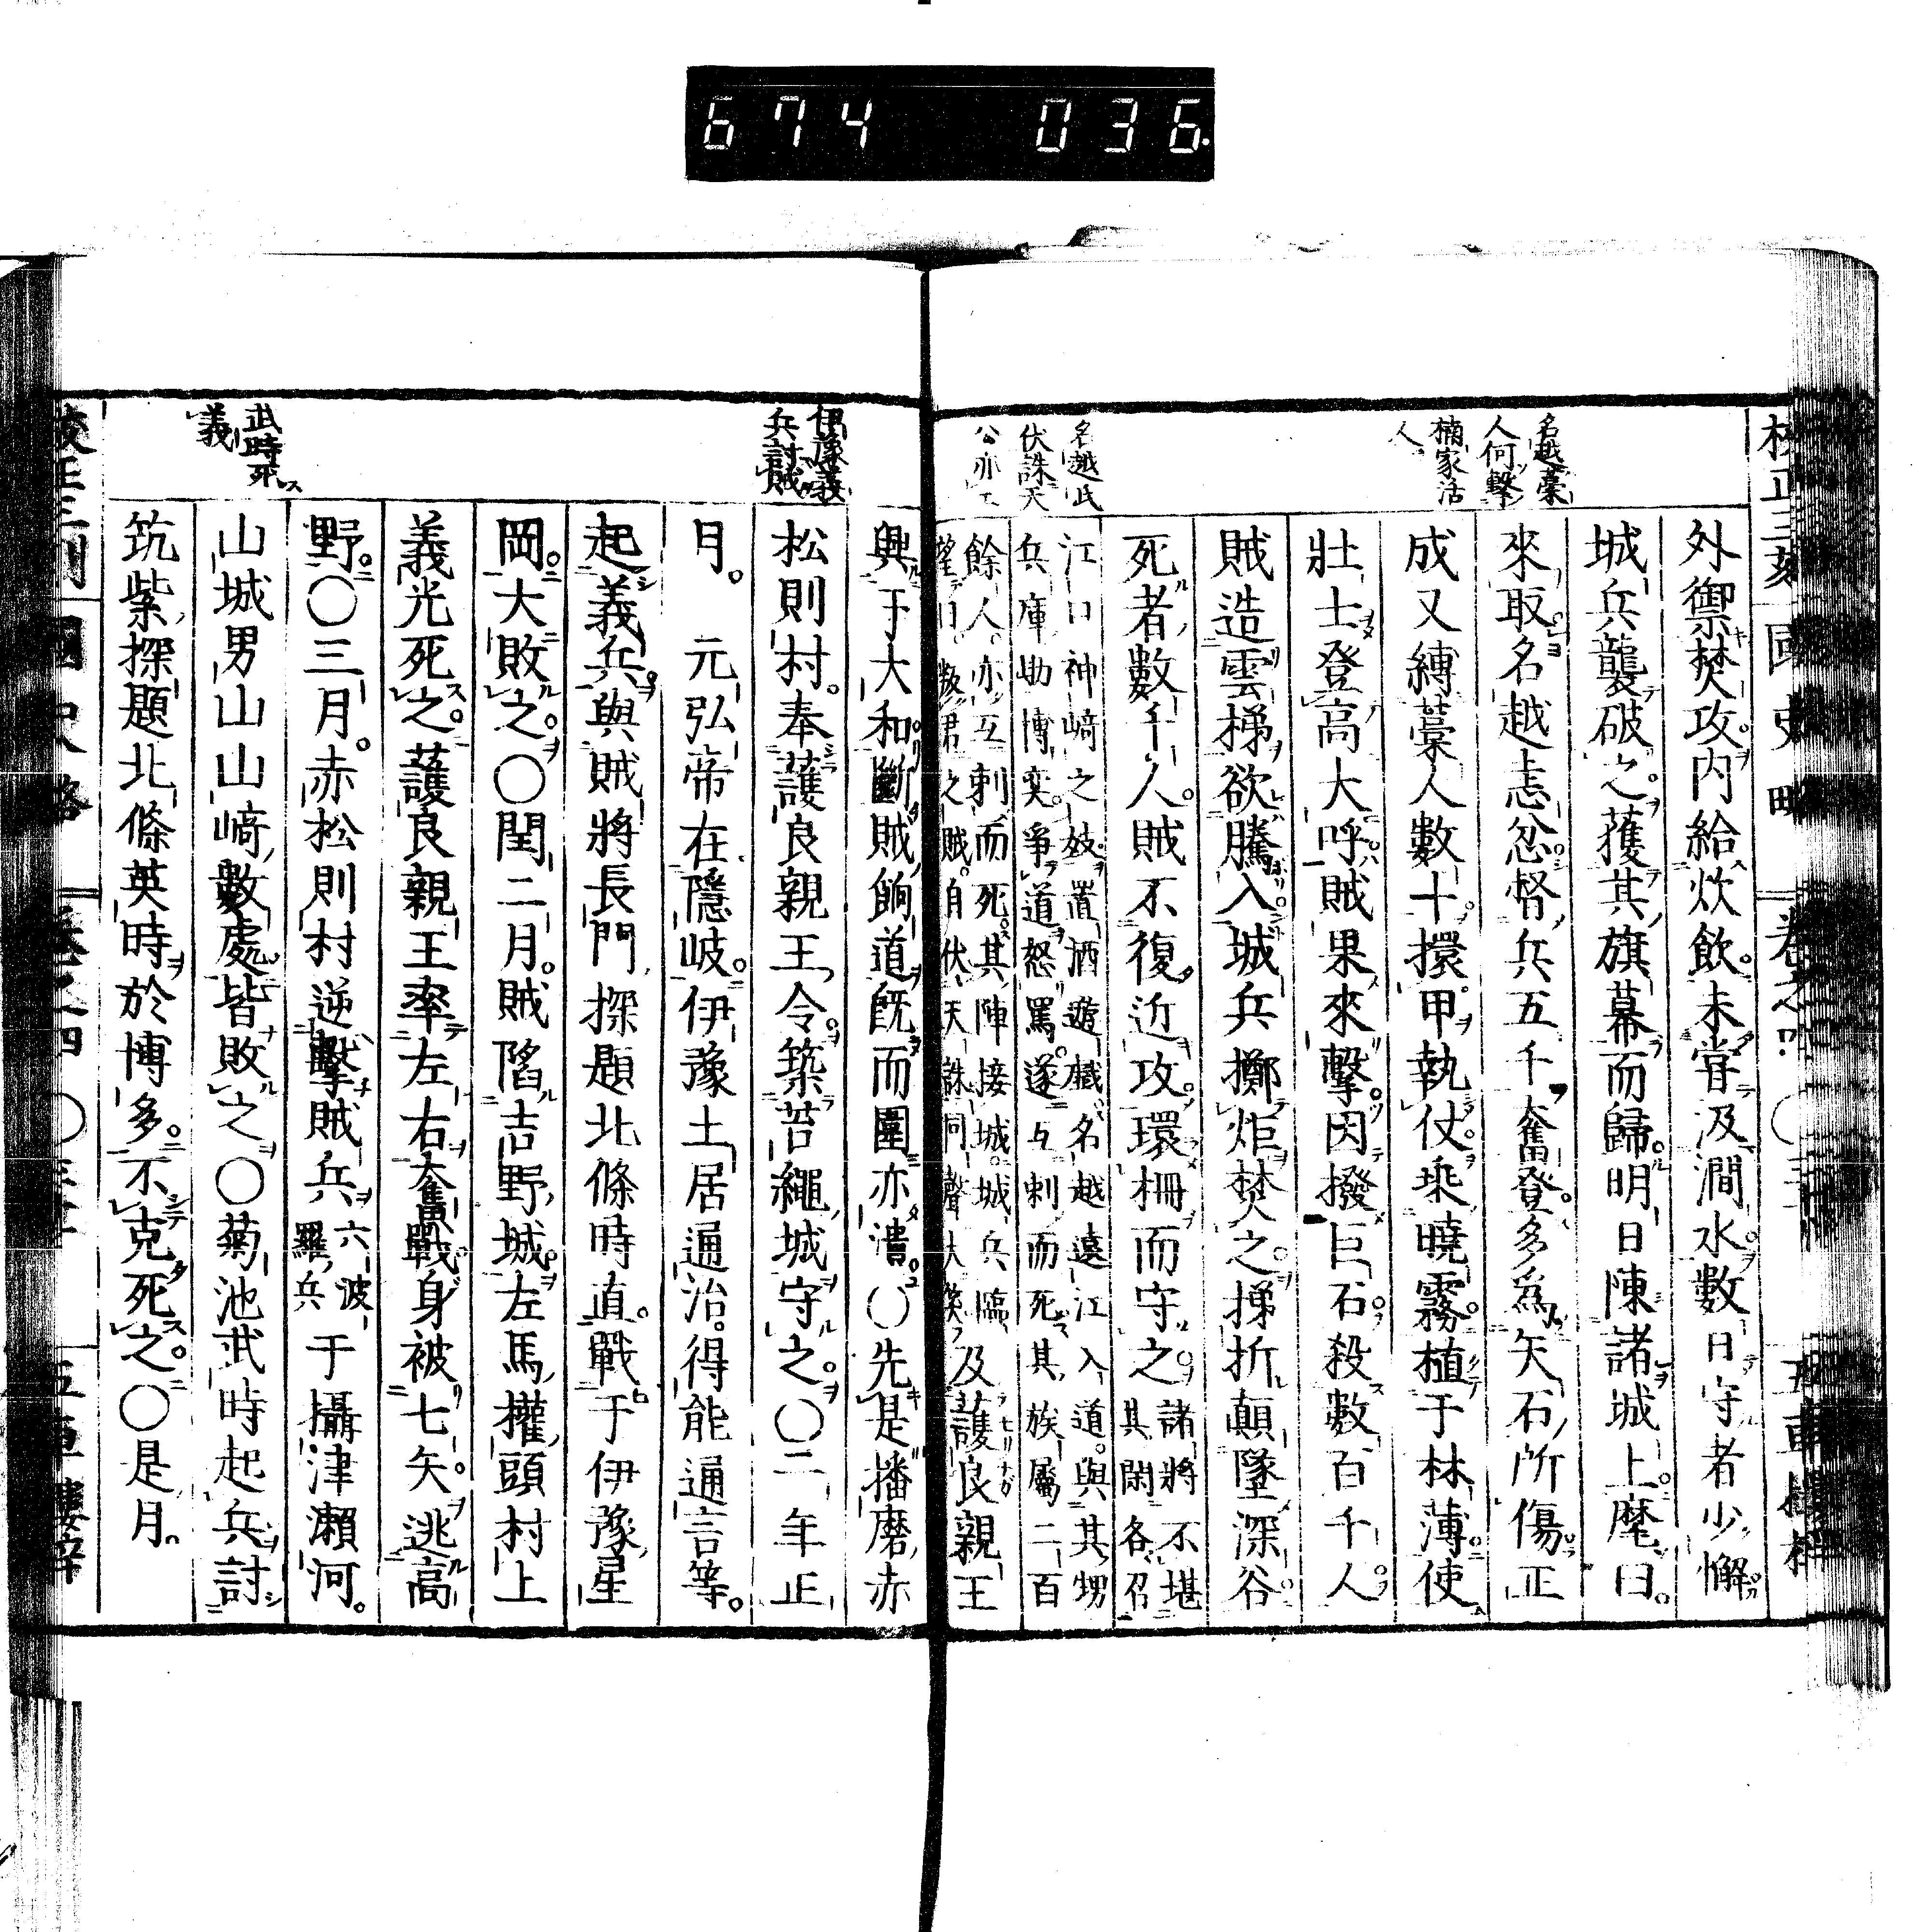 674 036.
外禦焚攻内給炊飲未嘗汲澗水數日守者少懈
城兵襲破之獲其旗幕而歸明日陳諸城上麾曰
來取名越恚忿督兵五千奮登多爲矢石所傷正
成又縛藁人數十擐甲執仗乘曉霧植于林薄使
壯士登高大呼賊果來擊因撥巨石殺數百千人
賊造雲梯欲騰入城兵擲炬焚之梯折顛墜深谷
死者數千人賊不復近攻環柵而守之諸將不堪其閑各召
江口神﨑之妓置酒遊橀名越遠江入道與其甥
兵庫助博奕爭道怒罵遂互刺而死其族屬二百
餘人亦互刺而死其陣接城城兵臨
望曰叛君之賊自伏天誅同聲大笑及護良親王
興于大和斷賊餉道既而圍亦潰〇先是播磨赤
松則村奉護良親王令築苔繩城守之〇二年正
月。元弘帝在隱岐伊豫土居通治得能通言等
起義兵與賊將長門探題北條時直戰于伊豫星
岡大敗之〇閏二月賊陷吉野城左馬權頭村上
義光死之護良親王率左右奮戰身被七矢逃高
野〇三月赤松則村逆擊賊兵六波羅兵于攝津瀨河
山城男山山﨑數處皆敗之〇菊池武時起兵討
筑紫探題北條英時於博多不克死之〇是月
名越藁
人何擊
楠家活
人
名越氏
伏誅天
公亦工
伊豫義
兵討賊
武時死
義